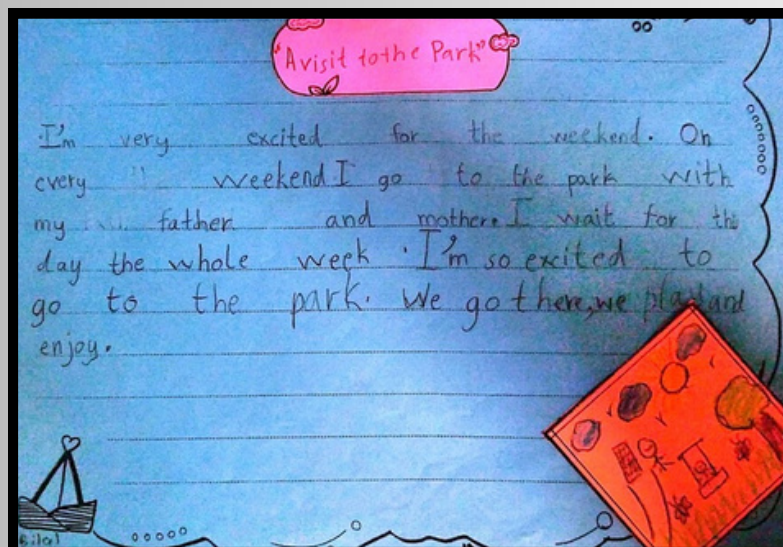 "A visit to the Park"
I'm very excited for the weekend. On
every weekend I go to the park with
my father and mother. I wait for this
day the whole week. I'm so excited to
go to the park. We go there, we play and
enjoy.
Bilal